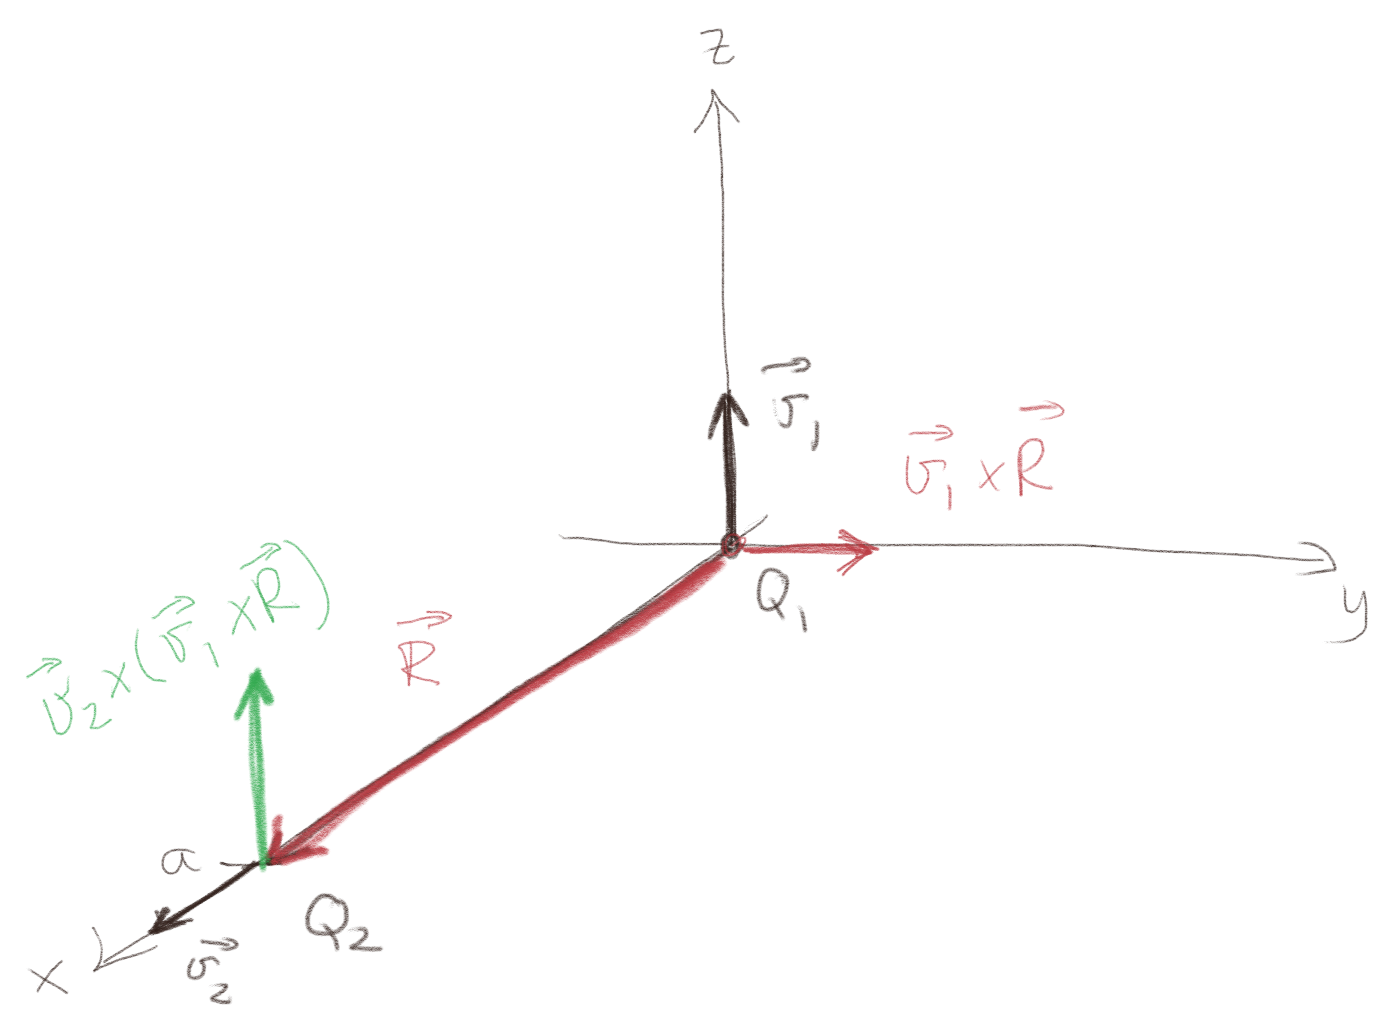 z
v⃗₁
v⃗₁ × R⃗
Q₁
y
v⃗₂ × (v⃗₁ × R⃗)
R⃗
a
Q₂
x
v⃗₂